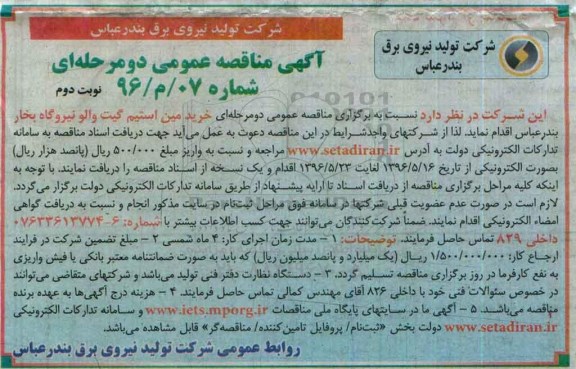 شرکت تولید نیروی برق بندرعباس
شرکت تولید نیروی برق
بندرعباس
آگهی مناقصه عمومی دومرحله‌ای
شماره ۰۷/م/۹۶
نوبت دوم
این شرکت در نظر دارد نسبت به برگزاری مناقصه عمومی دومرحله‌ای خرید مین استیم گیت والو نیروگاه بخار
بندرعباس اقدام نماید. لذا از شرکتهای واجدشرایط در این مناقصه دعوت به عمل می‌آید جهت دریافت اسناد مناقصه به سامانه
تدارکات الکترونیکی دولت به آدرس www.setadiran.ir مراجعه و نسبت به واریز مبلغ ۵۰۰/۰۰۰ ریال (پانصد هزار ریال)
بصورت الکترونیکی از تاریخ ۱۳۹۶/۵/۱۶ لغایت ۱۳۹۶/۵/۲۳ اقدام و یک نسخه از اسناد مناقصه را دریافت نمایند. با توجه به
اینکه کلیه مراحل برگزاری مناقصه از دریافت اسناد تا ارایه پیشنهاد از طریق سامانه تدارکات الکترونیکی دولت برگزار می‌گردد.
لازم است در صورت عدم عضویت قبلی شرکتها در سامانه فوق مراحل ثبت‌نام در سایت مذکور انجام و نسبت به دریافت گواهی
امضاء الکترونیکی اقدام نمایند. ضمناً شرکت‌کنندگان می‌توانند جهت کسب اطلاعات بیشتر با شماره: ۶-۰۷۶۳۳۶۱۳۷۷۴
داخلی ۸۲۹ تماس حاصل فرمایند. توضیحات: ۱ – مدت زمان اجرای کار: ۴ ماه شمسی ۲ – مبلغ تضمین شرکت در فرایند
ارجاع کار: ۱/۵۰۰/۰۰۰/۰۰۰ ریال (یک میلیارد و پانصد میلیون ریال) که باید به صورت ضمانتنامه معتبر بانکی یا فیش واریزی
به نفع کارفرما در روز برگزاری مناقصه تسلیم گردد. ۳ – دستگاه نظارت دفتر فنی تولید می‌باشد و شرکتهای متقاضی می‌توانند
در خصوص سئوالات فنی خود با داخلی ۸۲۶ آقای مهندس کمالی تماس حاصل فرمایند. ۴ – هزینه درج آگهی‌ها به عهده برنده
مناقصه می‌باشد. ۵ – آگهی ما در سایتهای پایگاه ملی مناقصات www.iets.mporg.ir و سامانه تدارکات الکترونیکی
دولت www.setadiran.ir بخش «ثبت‌نام/ پروفایل تامین‌کننده/ مناقصه‌گر» قابل مشاهده می‌باشد.
روابط عمومی شرکت تولید نیروی برق بندرعباس